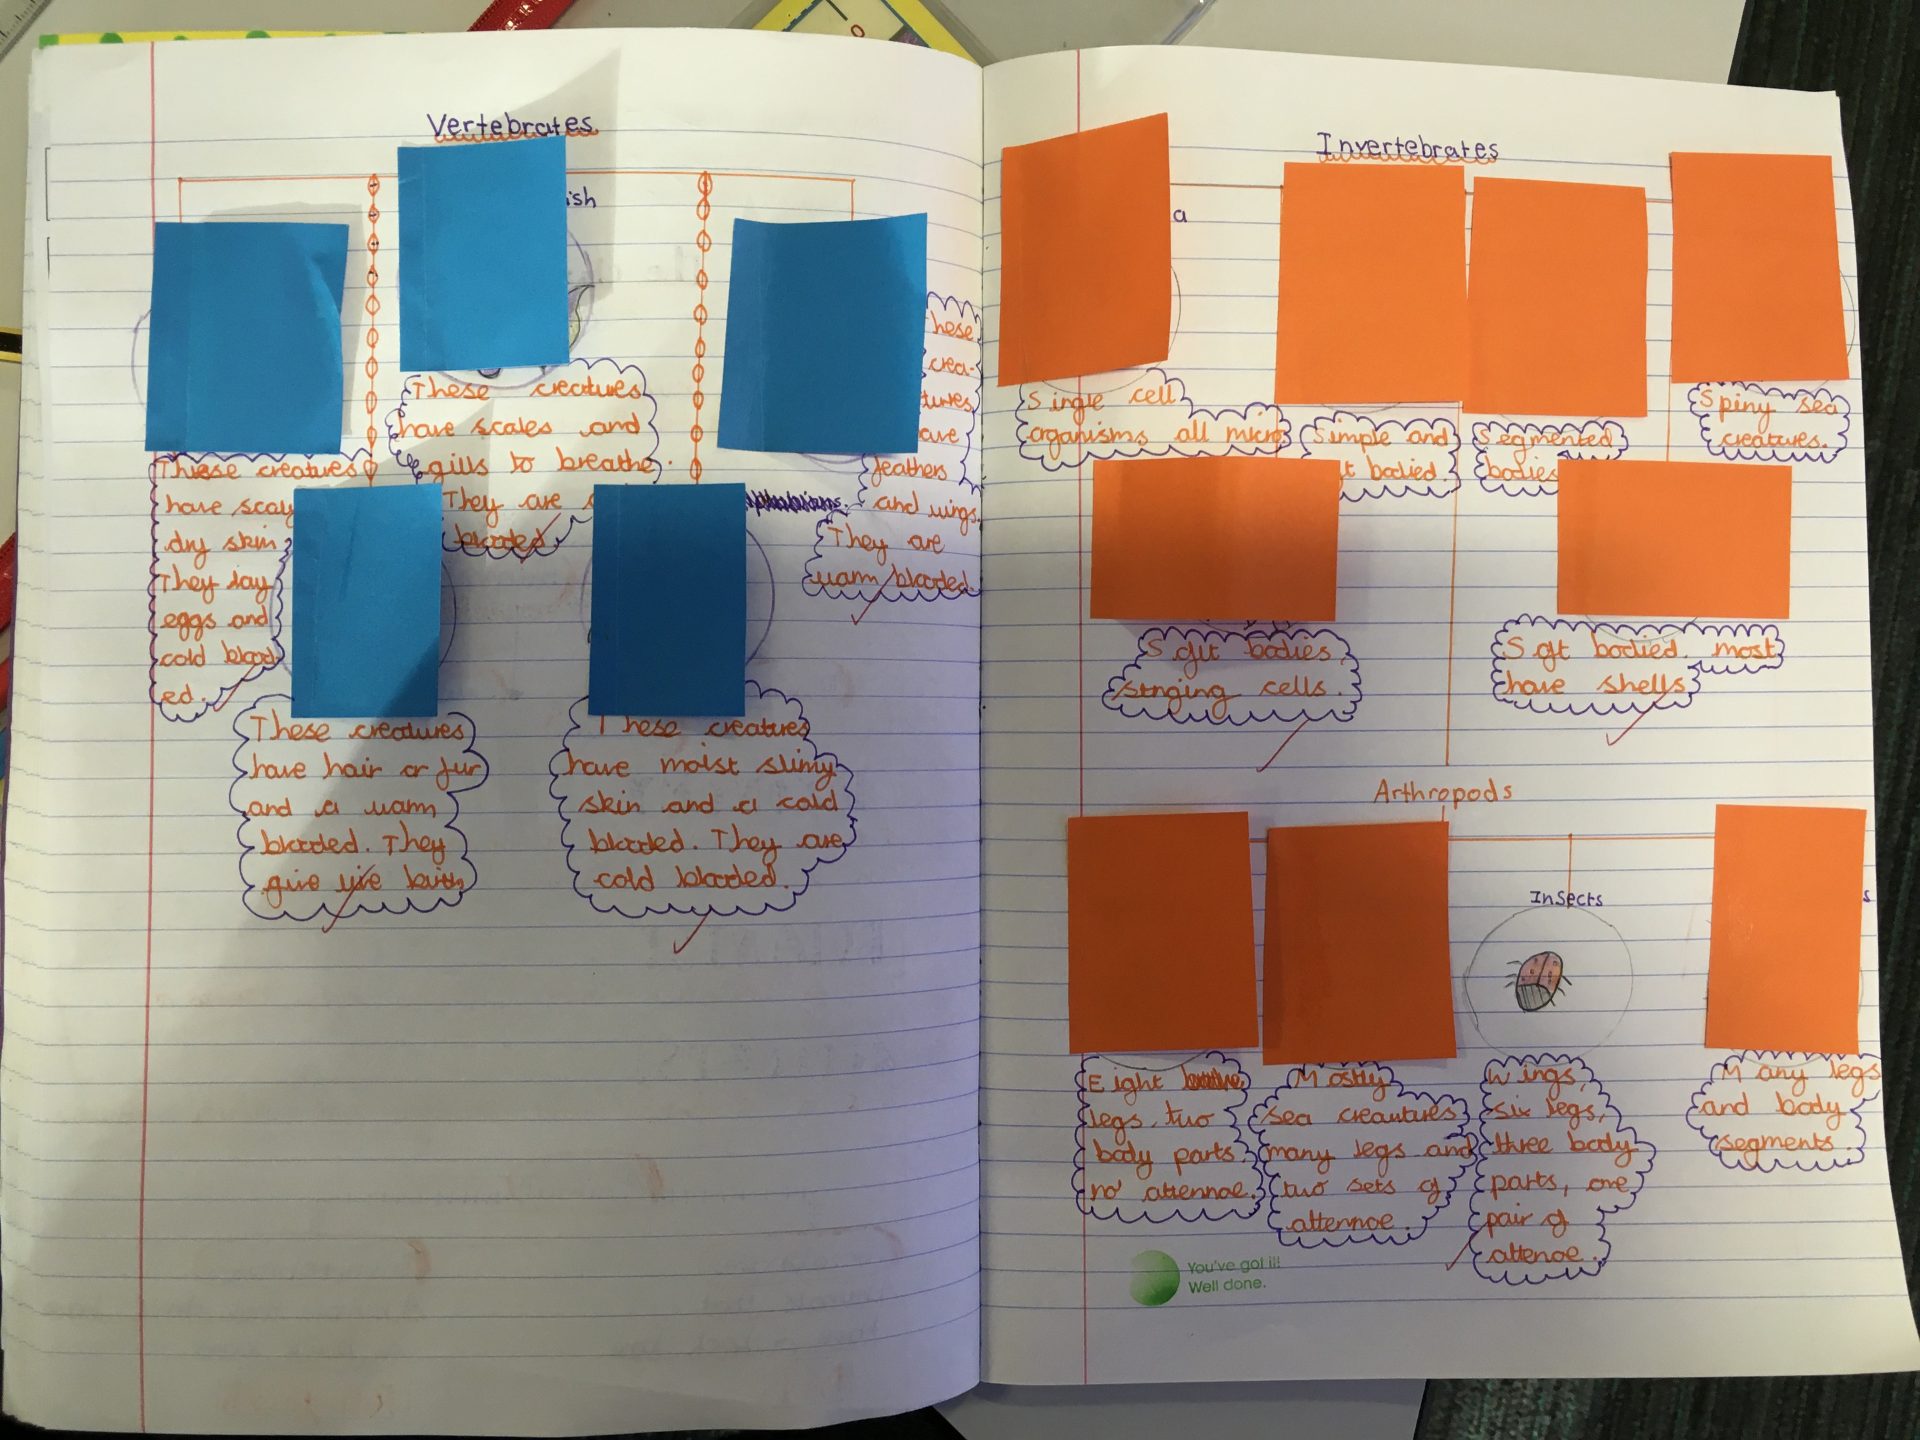 Vertebrates
ish
These creatures
have scaly
dry skin
They lay
eggs and
cold blood
ed.
These creatures
have scales and
gills to breathe.
They are
blooded
hese
crea-
tures
ave
feathers
and wings.
They are
warm blooded.
These creatures
have hair or fur
and a warm
blooded. They
give live birth
These creatures
have moist slimy
skin and a cold
blooded. They are
cold blooded.
Invertebrates
a
Single cell
organisms all micro
Simple and
t bodied.
Segmented
bodies
Spiny sea
creatures.
Soft bodies,
stnging cells.
Soft bodied. most
have shells
Arthropods
Insects
s
Eight
legs, two
body parts,
no attennae.
Mostly
sea creautures
many legs and
two sets of
attennae.
Wings,
six legs,
three body
parts, one
pair of
attenae.
Many legs
and body
segments.
You've got it!
Well done.